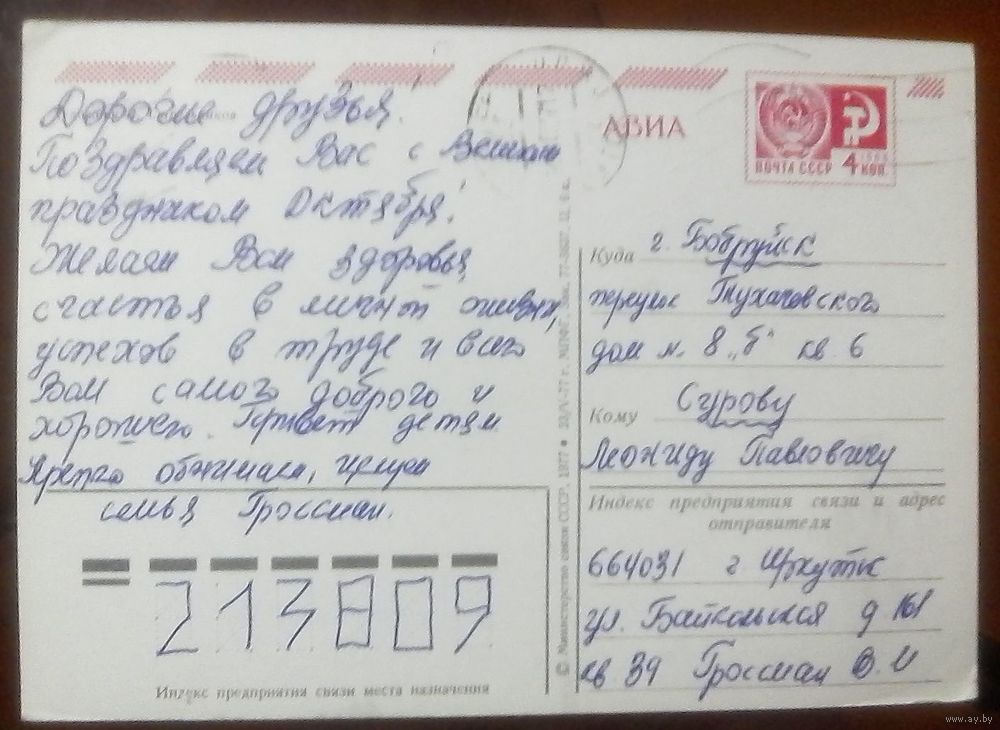 Дорогие друзья!
Поздравляем Вас с Великим
праздником Октября!
Желаем Вам здоровья
счастья в личной жизни,
успехов в труде и всего
Вам самого доброго и
хорошего. Привет детям
Крепко обнимаем, целуем
семья Гроссман.
213809
Индекс предприятия связи места назначения
© Министерство связи СССР, 1977
АВИА
ПОЧТА СССР 4 КОП
Куда г. Бобруйск
переулок Тухачевского
дом н. 8 „б" кв. 6
Кому Сурову
Леониду Павловичу
Индекс предприятия связи и адрес
отправителя
664031 г. Иркутск
ул. Байкальская д 161
кв 39 Гроссман В. И
www.ay.by